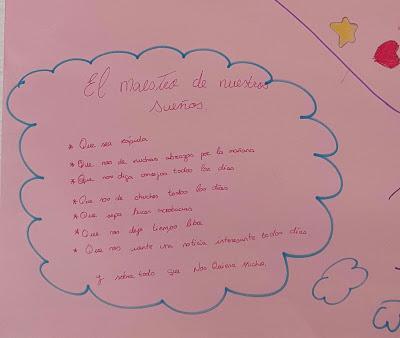 El maestro de nuestros
sueños.
* Que sea rápida
* Que nos de muchos abrazos por la mañana
* Que nos diga consejos todos los días
* Que nos de chuches todos los días
* Que sepa hacer acrobacias
* Que nos deje tiempo libre
* Que nos cuente una noticia interesante todos días
Y sobre todo que Nos Quiera Mucho.